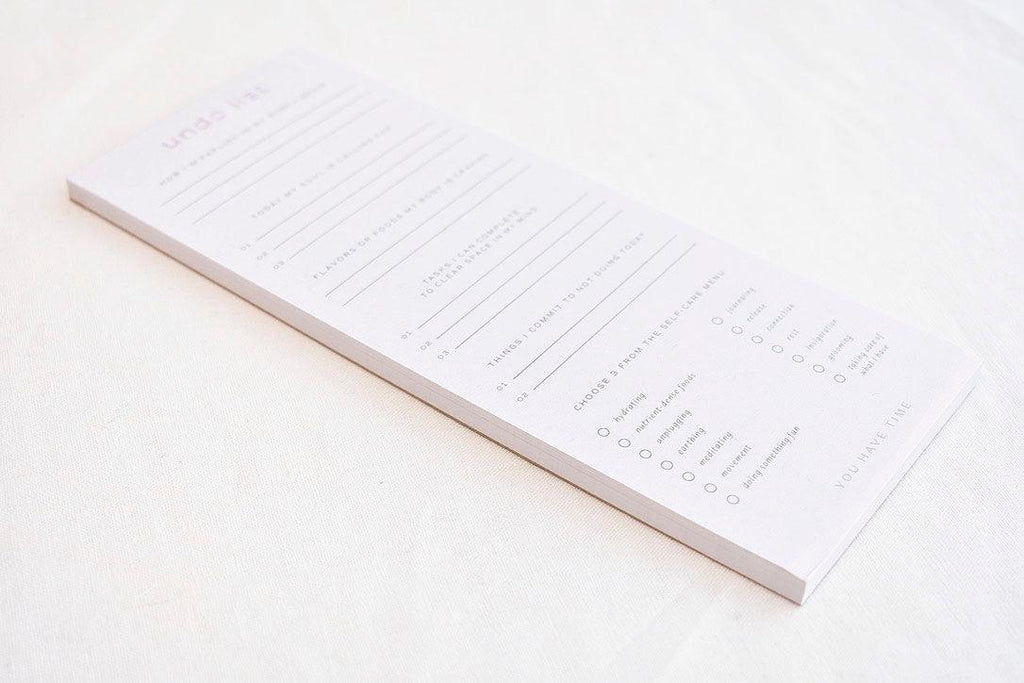 undo list
HOW I'M FEELING IN MY BODY + MIND
TODAY MY SOUL IS CALLING FOR
01
02
03
FLAVORS OR FOODS MY BODY IS CRAVING
TASKS I CAN COMPLETE
TO CLEAR SPACE IN MY MIND
01
02
03
THINGS I COMMIT TO NOT DOING TODAY
01
02
CHOOSE 3 FROM THE SELF-CARE MENU
hydrating
nutrient-dense foods
unplugging
earthing
meditating
movement
doing something fun
journaling
release
connection
rest
invigoration
grooming
taking care of
what i have
YOU HAVE TIME